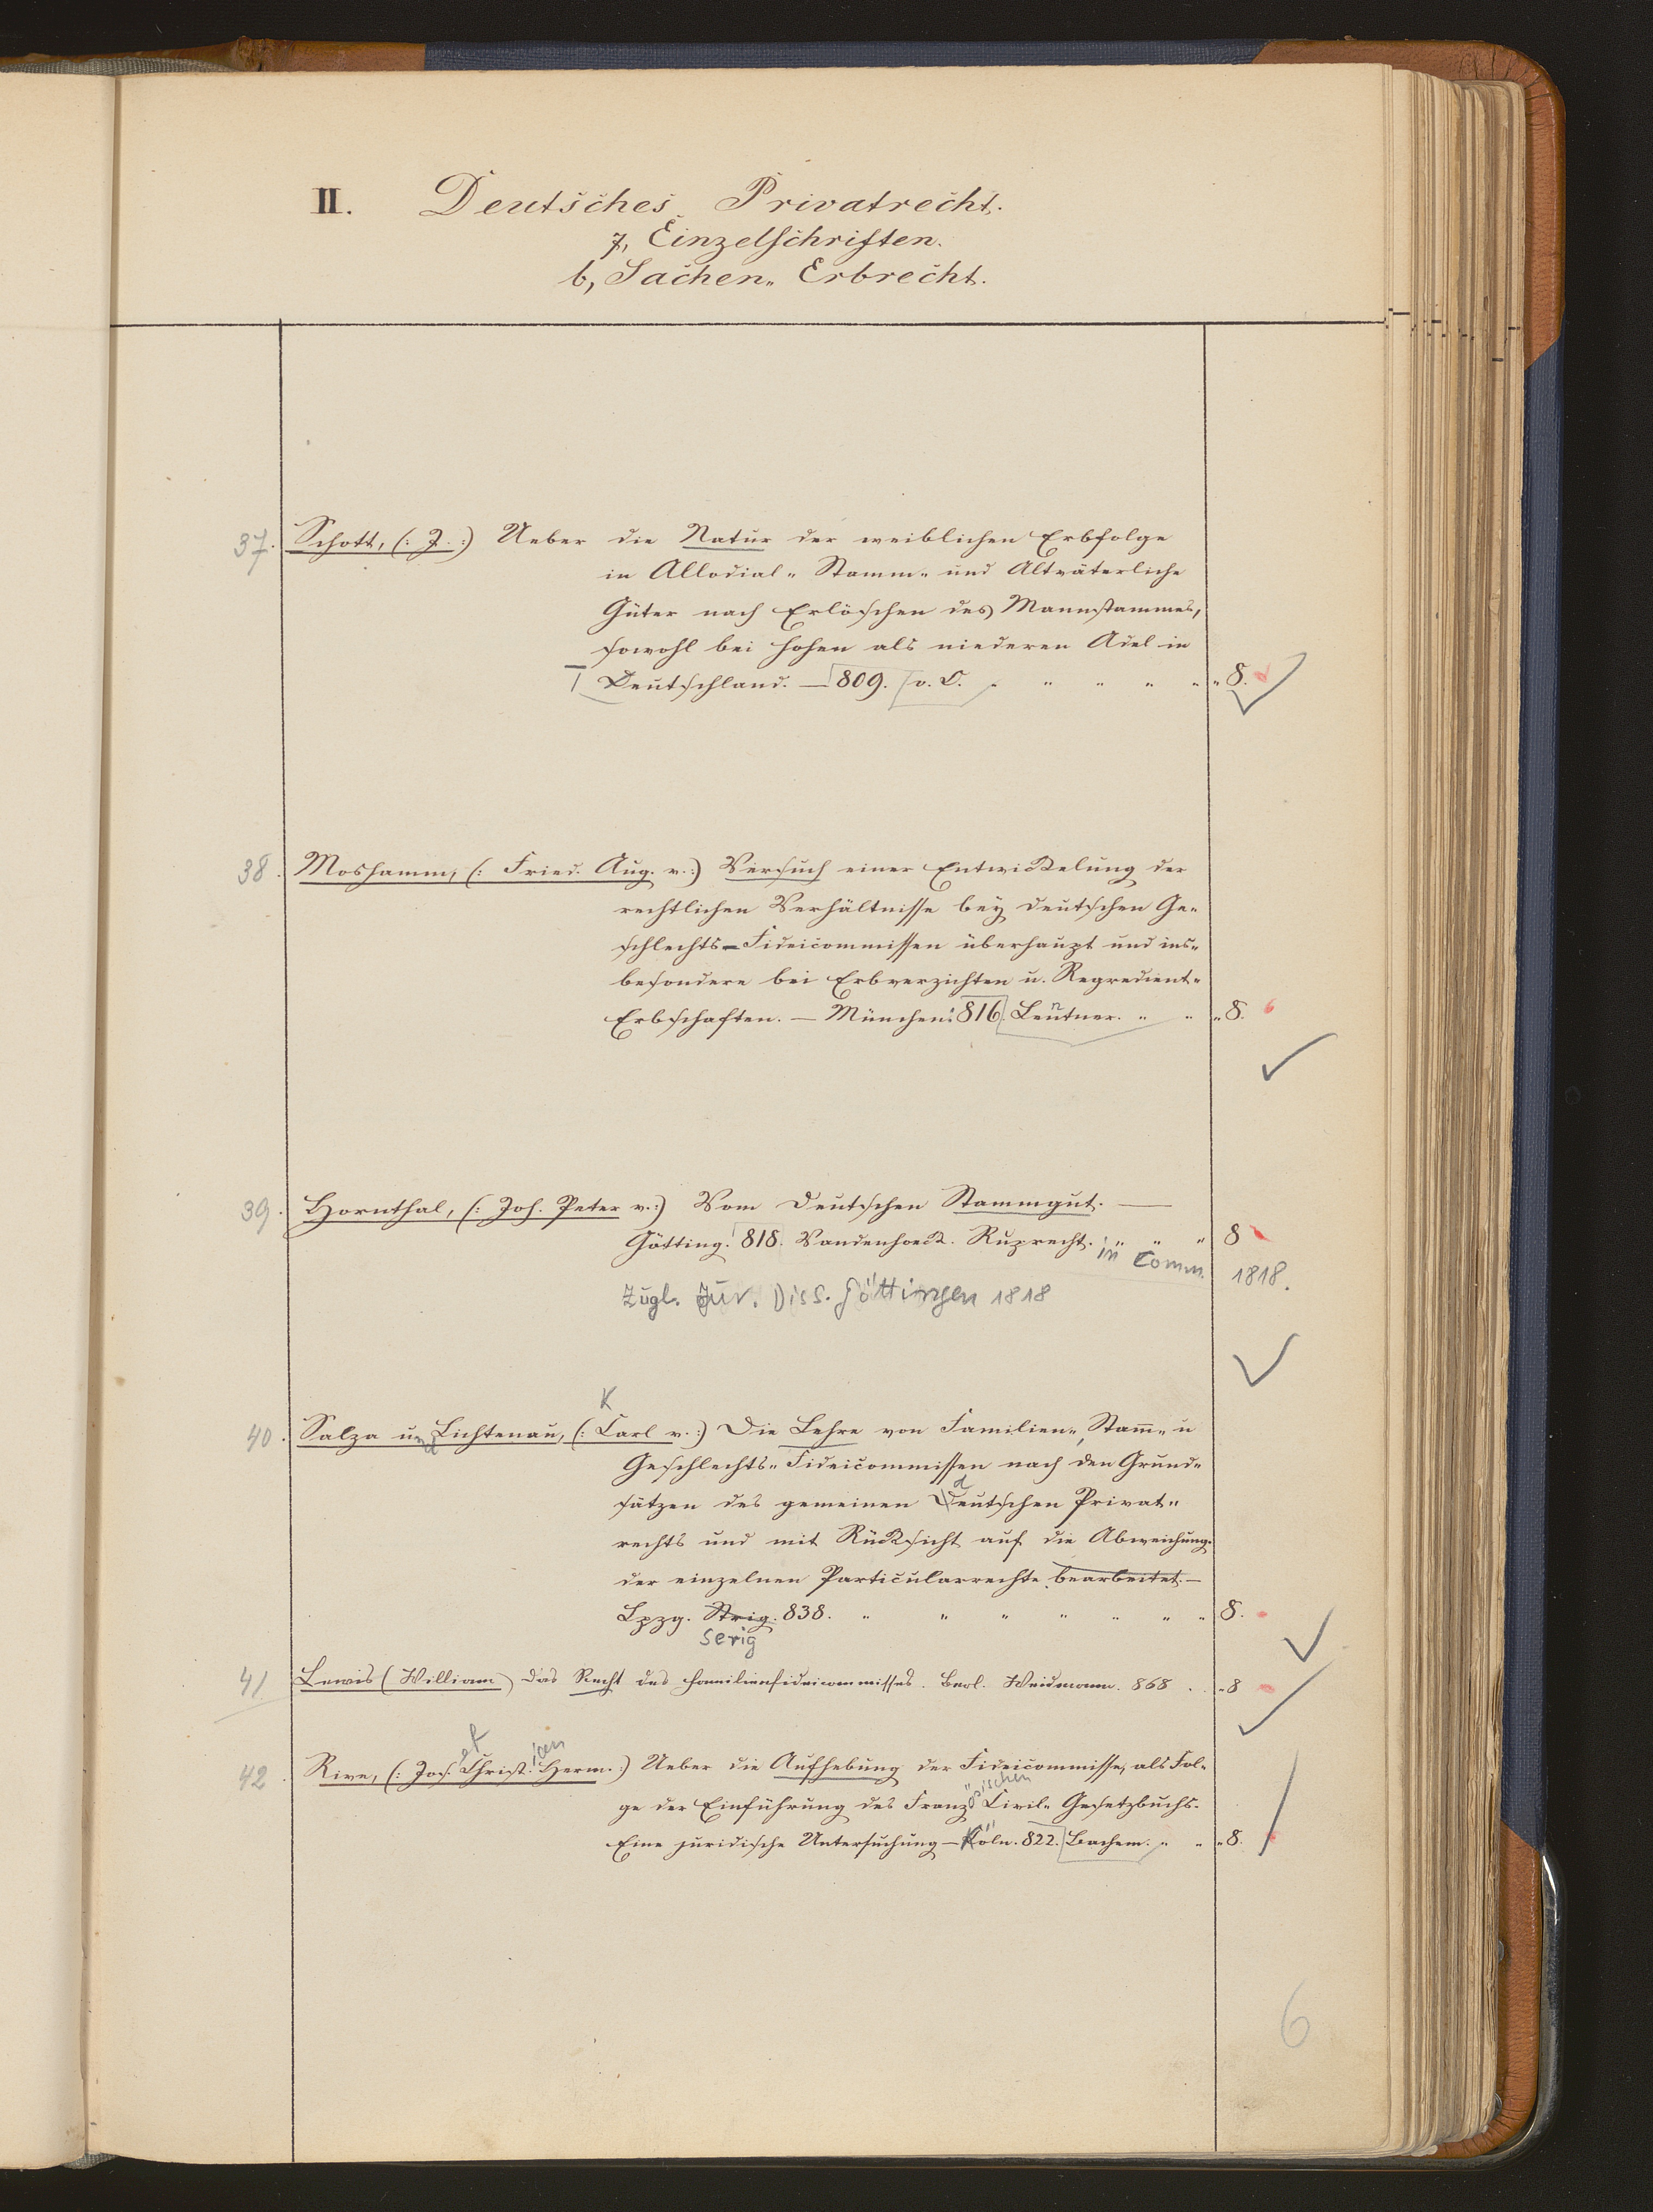 II. Deutsches Privatrecht.
7, Einzelschriften.
b, Sachen„ Erbrecht.
37. Schott, (: J. :) Ueber die Natur der weiblichen Erbfolge
in Allodial„ Stamm„ und Altväterliche
Güter nach Erlöschen des Mannstammes,
sowohl bei hohen als niederen Adel in
Deutschland. — 809. v. O. „ „ „ „ „ „ 8.
38. Moshamm, (: Fried. Aug. v. :) Versuch einer Entwickelung der
rechtlichen Verhältnisse bey deutschen Ge„
schlechts-Fideicommissen überhaupt und ins„
besondere bei Erbverzichten u. Regredient„
Erbschaften. — München. 816. Leutner. „ „ „ 8.
n
39. Hornthal, (: Joh. Peter v. :) Vom deutschen Stammgut. —
Götting. 818. Vandenhoeck. Ruprecht. „ „ „ 8
in Comm. 1818.
Zugl. Jur. Diss. Göttingen 1818
K
40. Salza und Lichtenau, (: Carl v. :) Die Lehre von Familien„, Stam̄„ u
Geschlechts„ Fideicommissen nach den Grund„
d
sätzen des gemeinen Deutschen Privat„
rechts und mit Rücksicht auf die Abweichung.
der einzelnen Particularrechte bearbeitet. —
Lpzg. Strig. 838. „ „ „ „ „ „ „ 8.
Serig
41. Lewis (William) Das Recht des Familienfideicommisses. Berl. Weidmann. 868 . „ 8
ef ian
42. Rive, (: Jos. Christ. Herm. :) Ueber die Aufhebung der Fideicommisse, als Fol„
ösischen
ge der Einführung des Franz. Civil„ Gesetzbuchs.
Eine juridische Untersuchung — Köln. 822. Bachem. „ „ „ 8.
6